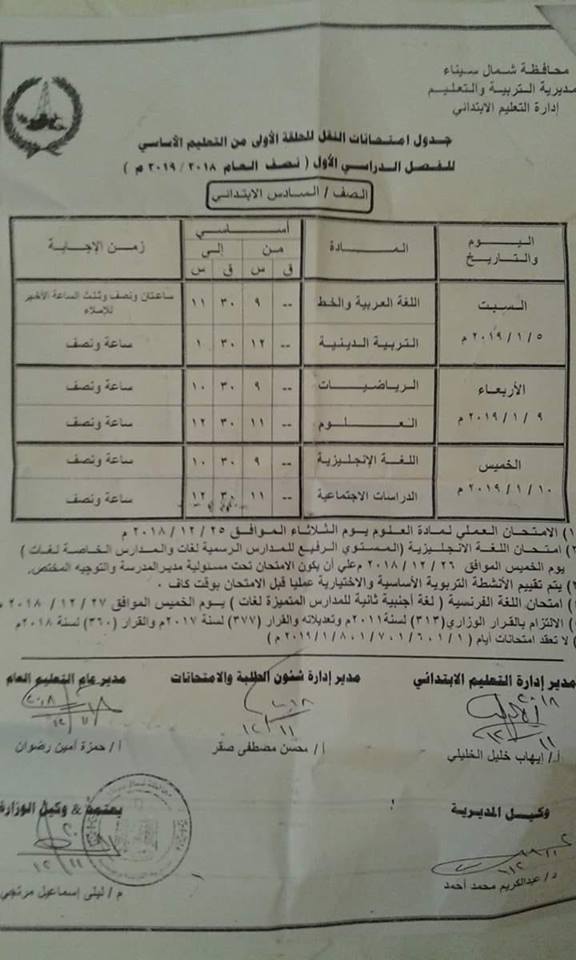 محافظة شمال سيناء
مديرية التربية والتعليم
إدارة التعليم الابتدائي
جدول امتحانات النقل للحلقة الأولى من التعليم الأساسي
للفصل الدراسي الأول ( نصف العام ٢٠١٨ / ٢٠١٩ م )
الصف / السادس الابتدائي
اليوم والتاريخ المادة أساسي زمن الإجابة
من إلى
ق س ق س
السبت ٢٠١٩/١/٥ م اللغة العربية والخط -- ٩ ٣٠ ١١ ساعتان ونصف وثلث الساعة الأخير للإملاء
التربية الدينية -- ١٢ ٣٠ ١ ساعة ونصف
الأربعاء ٢٠١٩/١/٩ م الرياضيات -- ٩ ٣٠ ١٠ ساعة ونصف
العلوم -- ١١ ٣٠ ١٢ ساعة ونصف
الخميس ٢٠١٩/١/١٠ م اللغة الإنجليزية -- ٩ ٣٠ ١٠ ساعة ونصف
الدراسات الاجتماعية -- ١١ ٣٠ ١٢ ساعة ونصف
١) الامتحان العملي لمادة العلوم يوم الثلاثاء الموافق ٢٥ / ١٢ / ٢٠١٨ م
٢) امتحان اللغة الانجليزية (المستوي الرفيع للمدارس الرسمية لغات والمدارس الخاصة لغات )
يوم الخميس الموافق ٢٦ / ١٢ / ٢٠١٨ م علي أن يكون الامتحان تحت مسئولية مدير المدرسة والتوجيه المختص.
يتم تقييم الأنشطة التربوية الأساسية والاختيارية عمليا قبل الامتحان بوقت كاف .
) امتحان اللغة الفرنسية ( لغة أجنبية ثانية للمدارس المتميزة لغات ) يوم الخميس الموافق ٢٧ / ١٢ / ٢٠١٨ م
) الالتزام بالقرار الوزاري (٣١٣) لسنة ٢٠١١م وتعديلاته والقرار (٣٧٧) لسنة ٢٠١٧م والقرار (٣٦٠) لسنة ٢٠١٨م
) لا تعقد امتحانات أيام ( ١ / ٦،١ / ٧،١ / ٨،١ / ٢٠١٩/١ م )
مدير إدارة التعليم الابتدائي مدير إدارة شئون الطلبة والامتحانات مدير عام التعليم العام
أ./ إيهاب خليل الخليلي أ/ محسن مصطفى صقر أ / حمزة أمين رضوان
وكيل المديرية يعتمد & وكيل الوزارة
د/ عبدالكريم محمد أحمد م / ليلى إسماعيل مرتجي